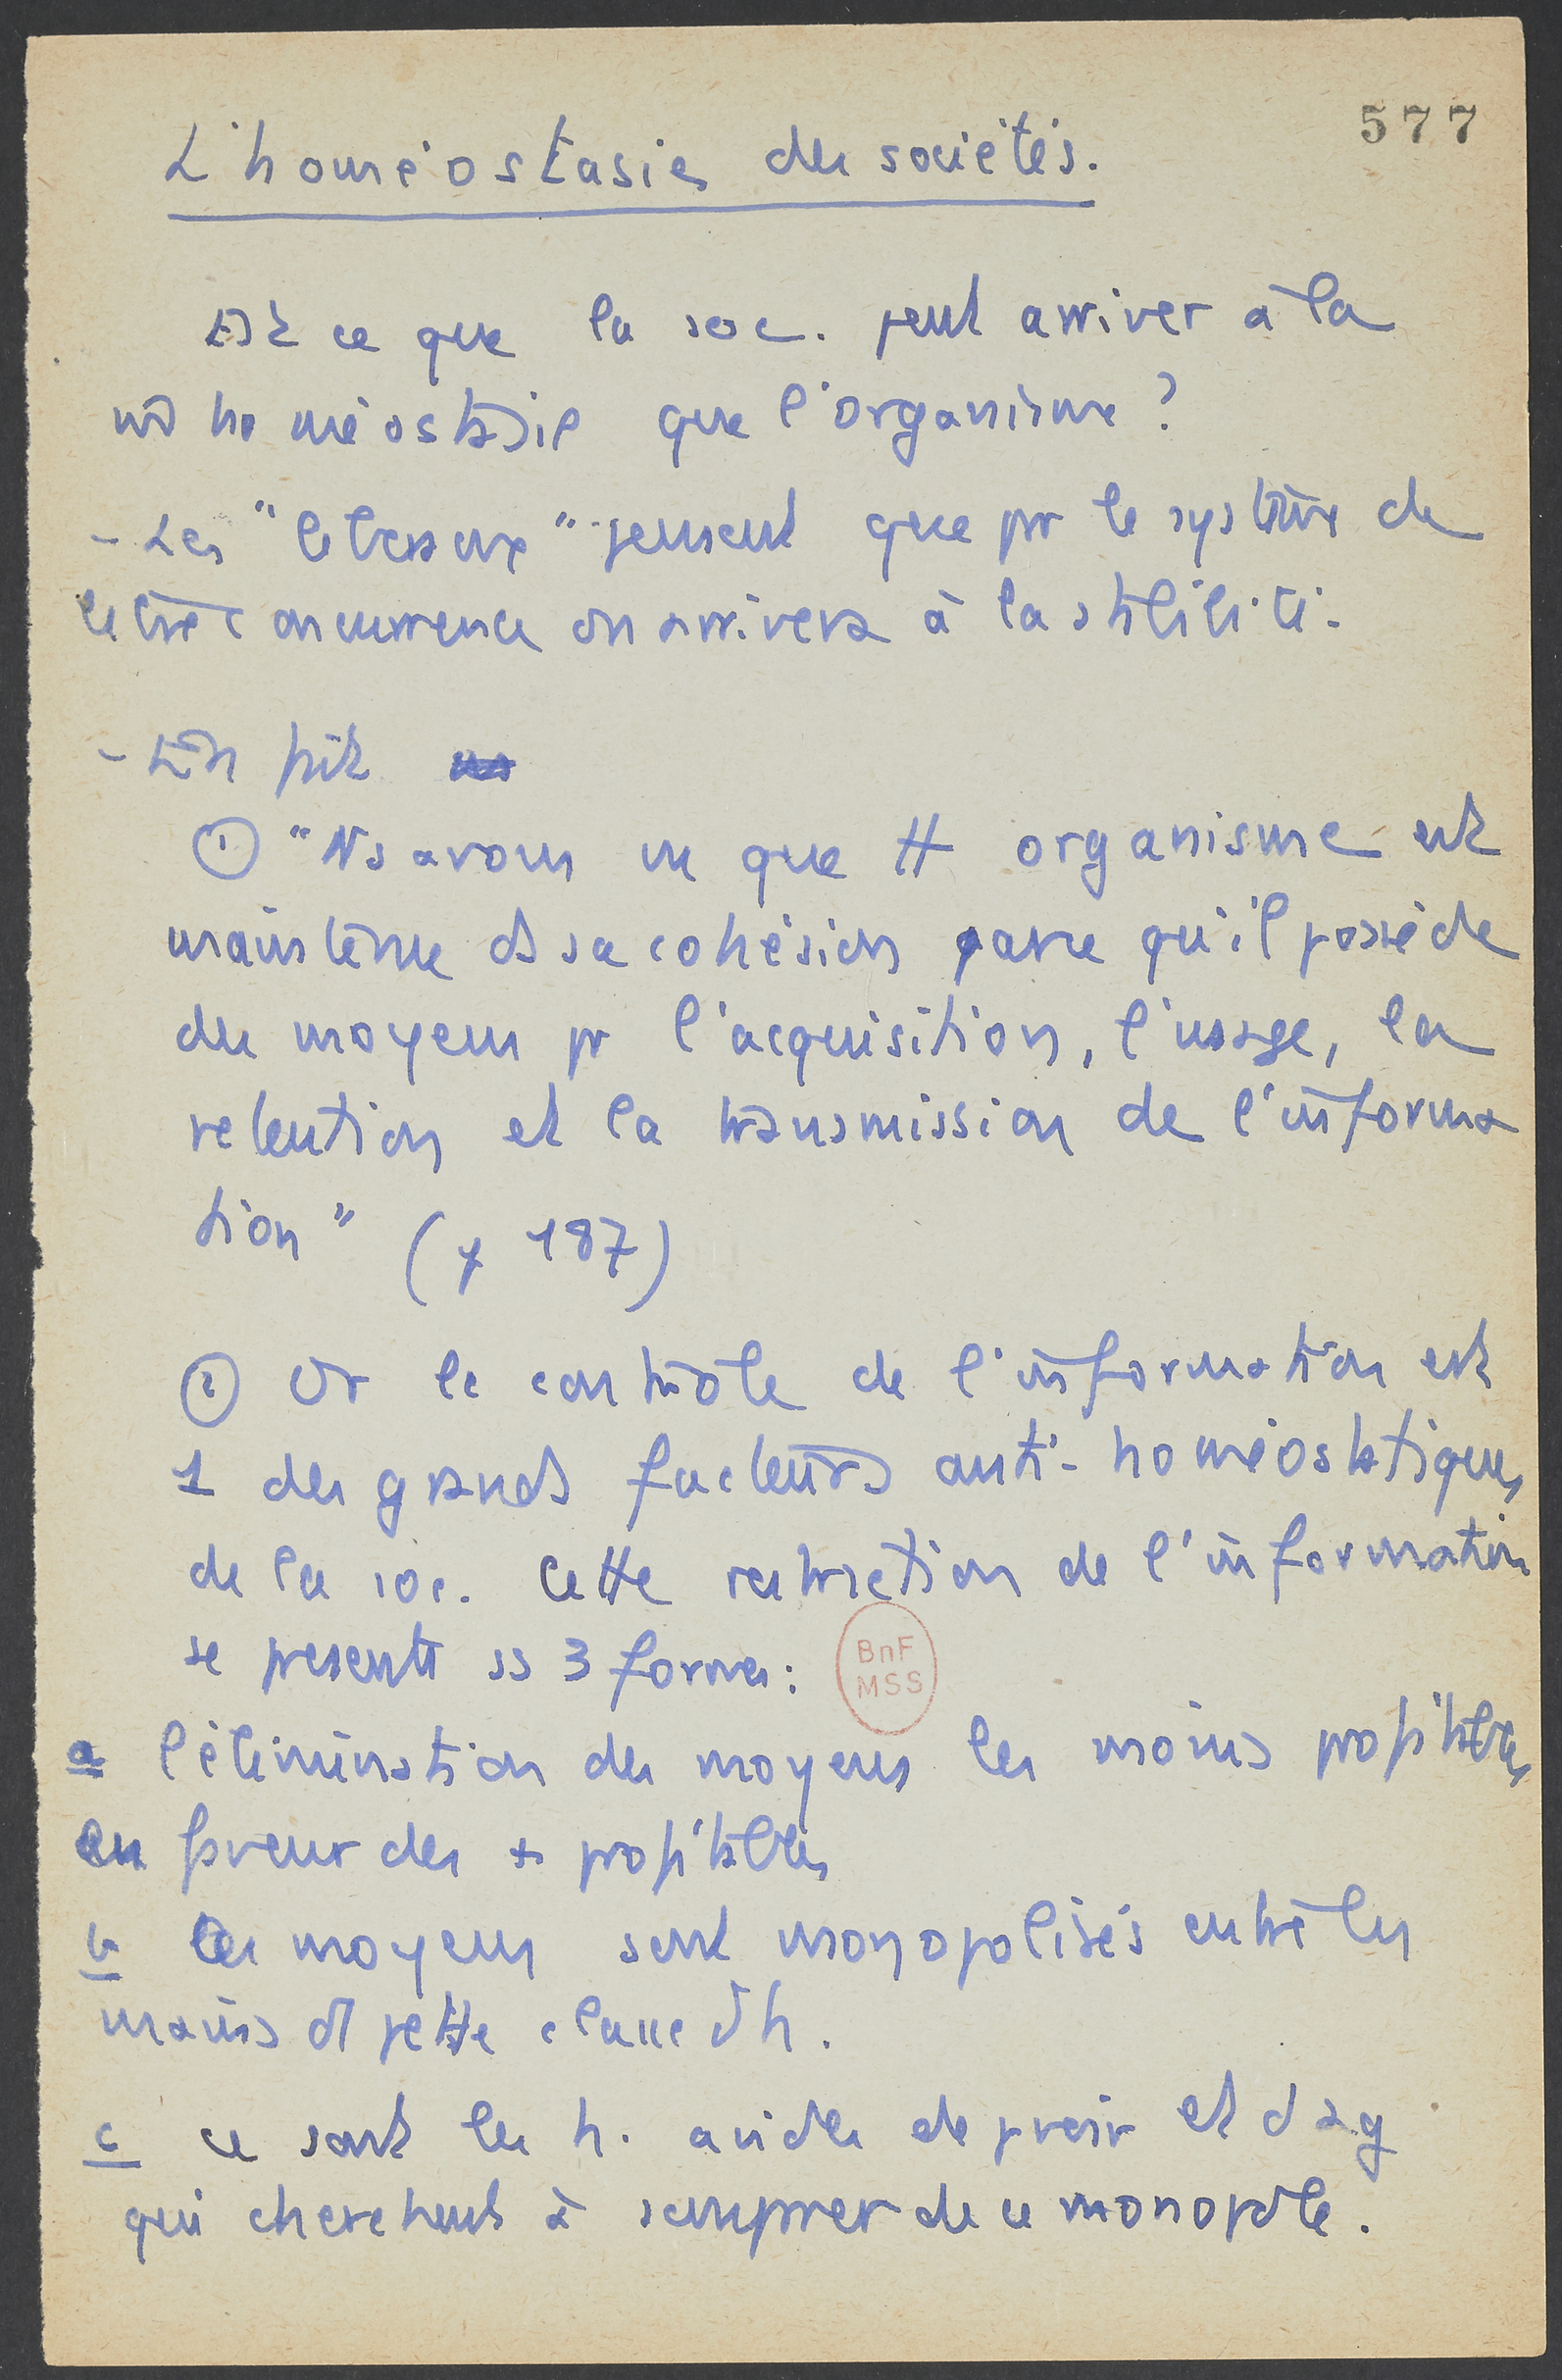 577
L'homéostasie des sociétés.
Est ce que la soc. peut arriver à la
m̂ homéostasie que l'organisme ?
- Les " pensent que par le système de
libre concurrence on arrivera à la stabilité.
- En fait
① "Ns avons vu que tt organisme est
maintenu ds sa cohésion parce qu'il possède
des moyens pr l'acquisition, l'usage, la
retention et la transmission de l'informa
tion" (p 187)
② Or le contrôle de l'information est
1 des grands facteurs anti-homéostatiques
de la soc. Cette restriction de l'information
se presente ss 3 formes :
BnF
MSS
a l'élimination des moyens les moins profitables
en faveur des + profitables
b les moyens sont monopolisés entre les
mains d' petite classe d'h.
c ce sont les h. avides de pvoir et d'ag
qui cherchent à s'emparer de ce monopole.